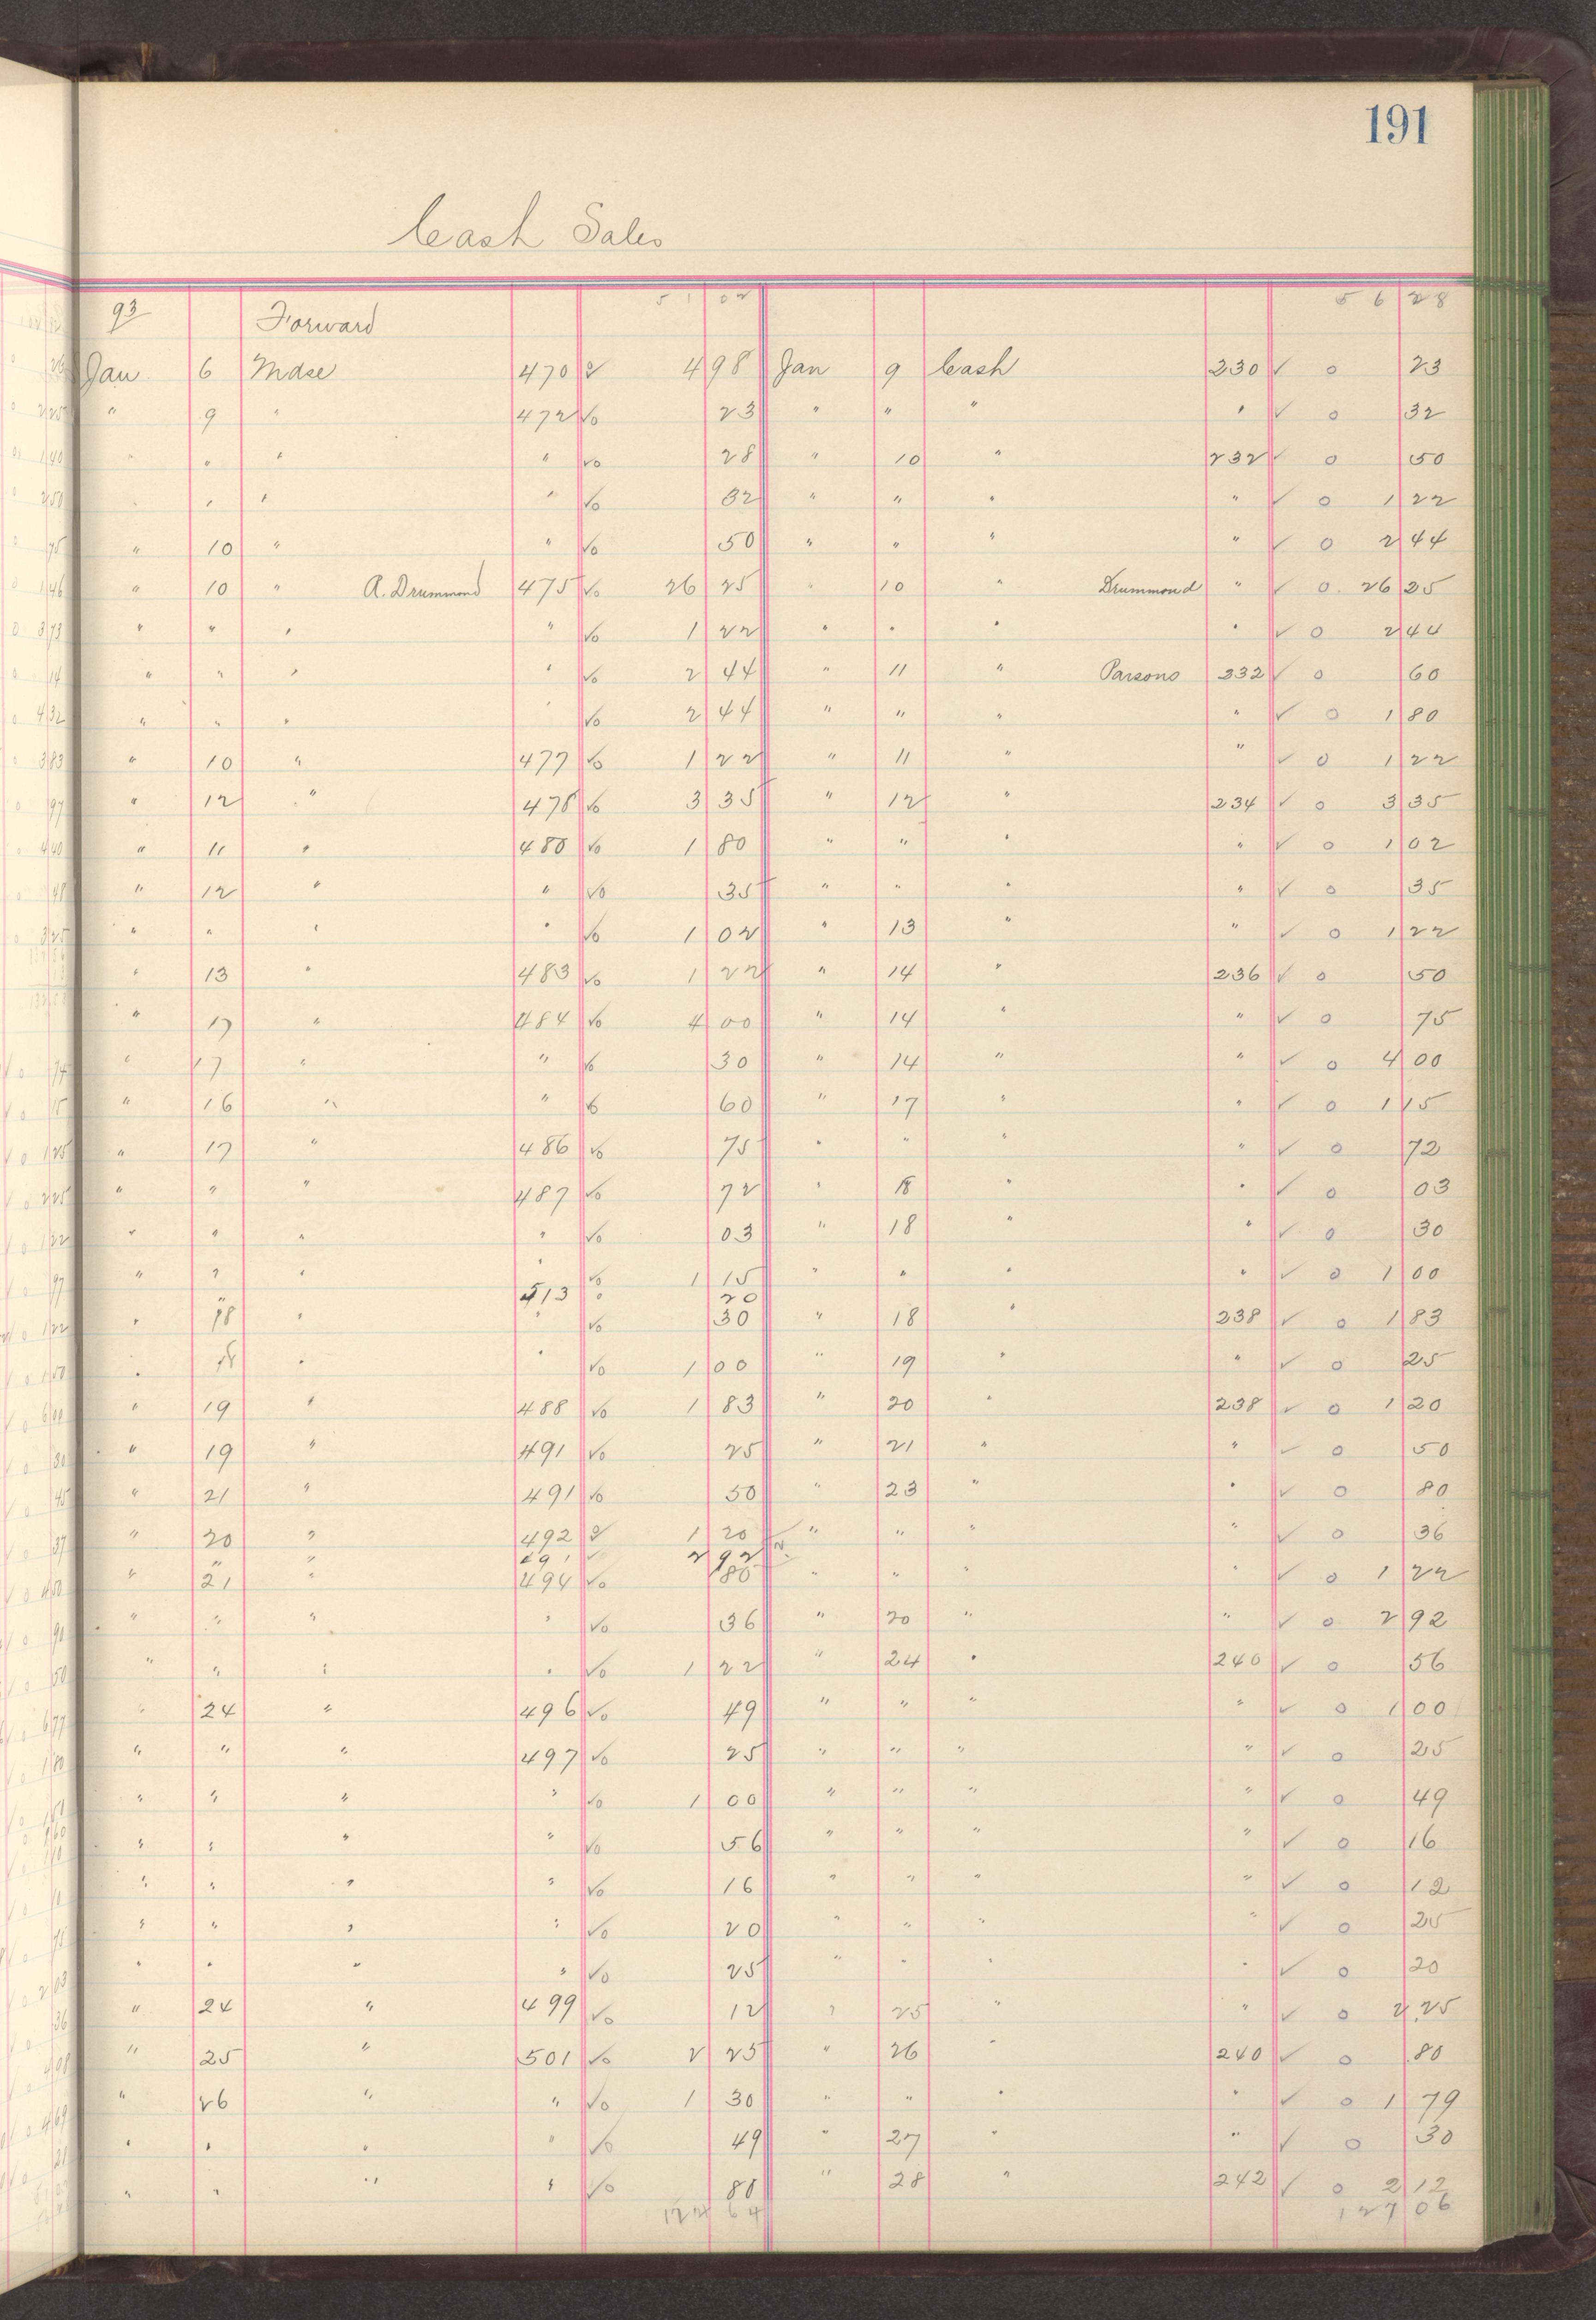 191
Cash Sales
93 Forward 51 02 56 28
Jan 6 Mdse 470 ✓o 4 98 Jan 9 Cash 230 ✓ o 23
" 9 " 472 ✓o 23 " " " " ✓ o 32
" " " " ✓o 28 " 10 " 232 ✓ o 50
" " " " ✓o 32 " " " " ✓ o 1 22
" 10 " " ✓o 50 " " " " ✓ o 2 44
" 10 " A. Drummond 475 ✓o 26 25 " 10 " Drummond " ✓ o 26 25
" " " " ✓o 1 22 " " " " ✓ o 2 44
" " " " ✓o 2 44 " 11 " Parsons 232 ✓ o 60
" " " " ✓o 2 44 " " " " ✓ o 1 80
" 10 " 477 ✓o 1 22 " 11 " " ✓ o 1 22
" 12 " 478 ✓o 3 35 " 12 " 234 ✓ o 3 35
" 11 " 480 ✓o 1 80 " " " " ✓ o 1 02
" 12 " " ✓o 35 " " " " ✓ o 35
" " " " ✓o 1 02 " 13 " " ✓ o 1 22
" 13 " 483 ✓o 1 22 " 14 " 236 ✓ o 50
" 17 " 484 ✓o 4 00 " 14 " " ✓ o 75
" 17 " " ✓o 30 " 14 " " ✓ o 4 00
" 16 " " ✓o 60 " 17 " " ✓ o 1 15
" 17 " 486 ✓o 75 " " " " ✓ o 72
" " " 487 ✓o 72 " 18 " " ✓ o 03
" " " " ✓o 03 " 18 " " ✓ o 30
" " " " ✓o 1 15 " " " " ✓ o 1 00
" 513 o 20
" 18 " " ✓o 30 " 18 " 238 ✓ o 1 83
" 18 " " ✓o 1 00 " 19 " " ✓ o 25
" 19 " 488 ✓o 1 83 " 20 " 238 ✓ o 1 20
" 19 " 491 ✓o 25 " 21 " " ✓ o 50
" 21 " 491 ✓o 50 " 23 " " ✓ o 80
" 20 " 492 ✓o 1 20 " " " " ✓ o 36
" " 491 ✓ 2 92
" 21 " 494 ✓o 80 " " " ✓ o 1 22
" " " " ✓o 36 " 20 " " ✓ o 2 92
" " " " ✓o 1 22 " 24 " 240 ✓ o 56
" 24 " 496 ✓o 49 " " " " ✓ o 1 00
" " " 497 ✓o 25 " " " " ✓ o 25
" " " " ✓o 1 00 " " " " ✓ o 49
" " " " ✓o 56 " " " " ✓ o 16
" " " " ✓o 16 " " " " ✓ o 12
" " " " ✓o 20 " " " " ✓ o 25
" " " " ✓o 25 " " " " ✓ o 20
" 24 " 499 ✓o 12 " 25 " " ✓ o 2 25
" 25 " 501 ✓o 2 25 " 26 " 240 ✓ o 80
" 26 " " ✓o 1 30 " " " " ✓ o 1 79
" " " " ✓o 49 " 27 " " ✓ o 30
" " " " ✓o 80 " 28 " 242 ✓ o 2 12
124 64 127 06